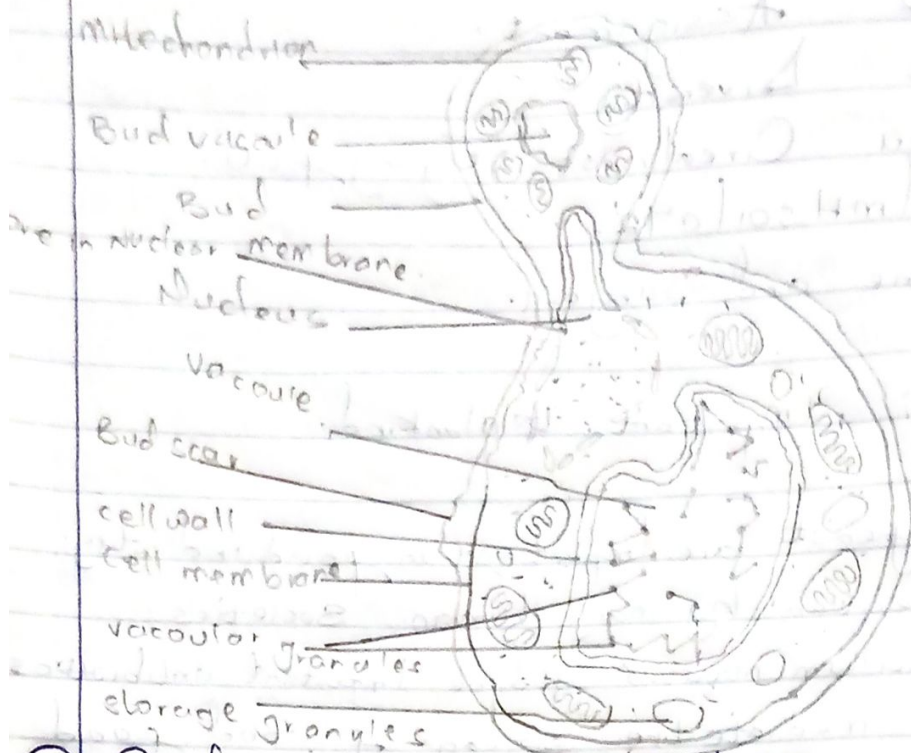 Mitochondrion
Bud vacoule
Bud
Pore in Nuclear membrane.
Nucleus
Vacoule
Bud scar
cell wall
Cell membrane
vacoular granules
storage granules